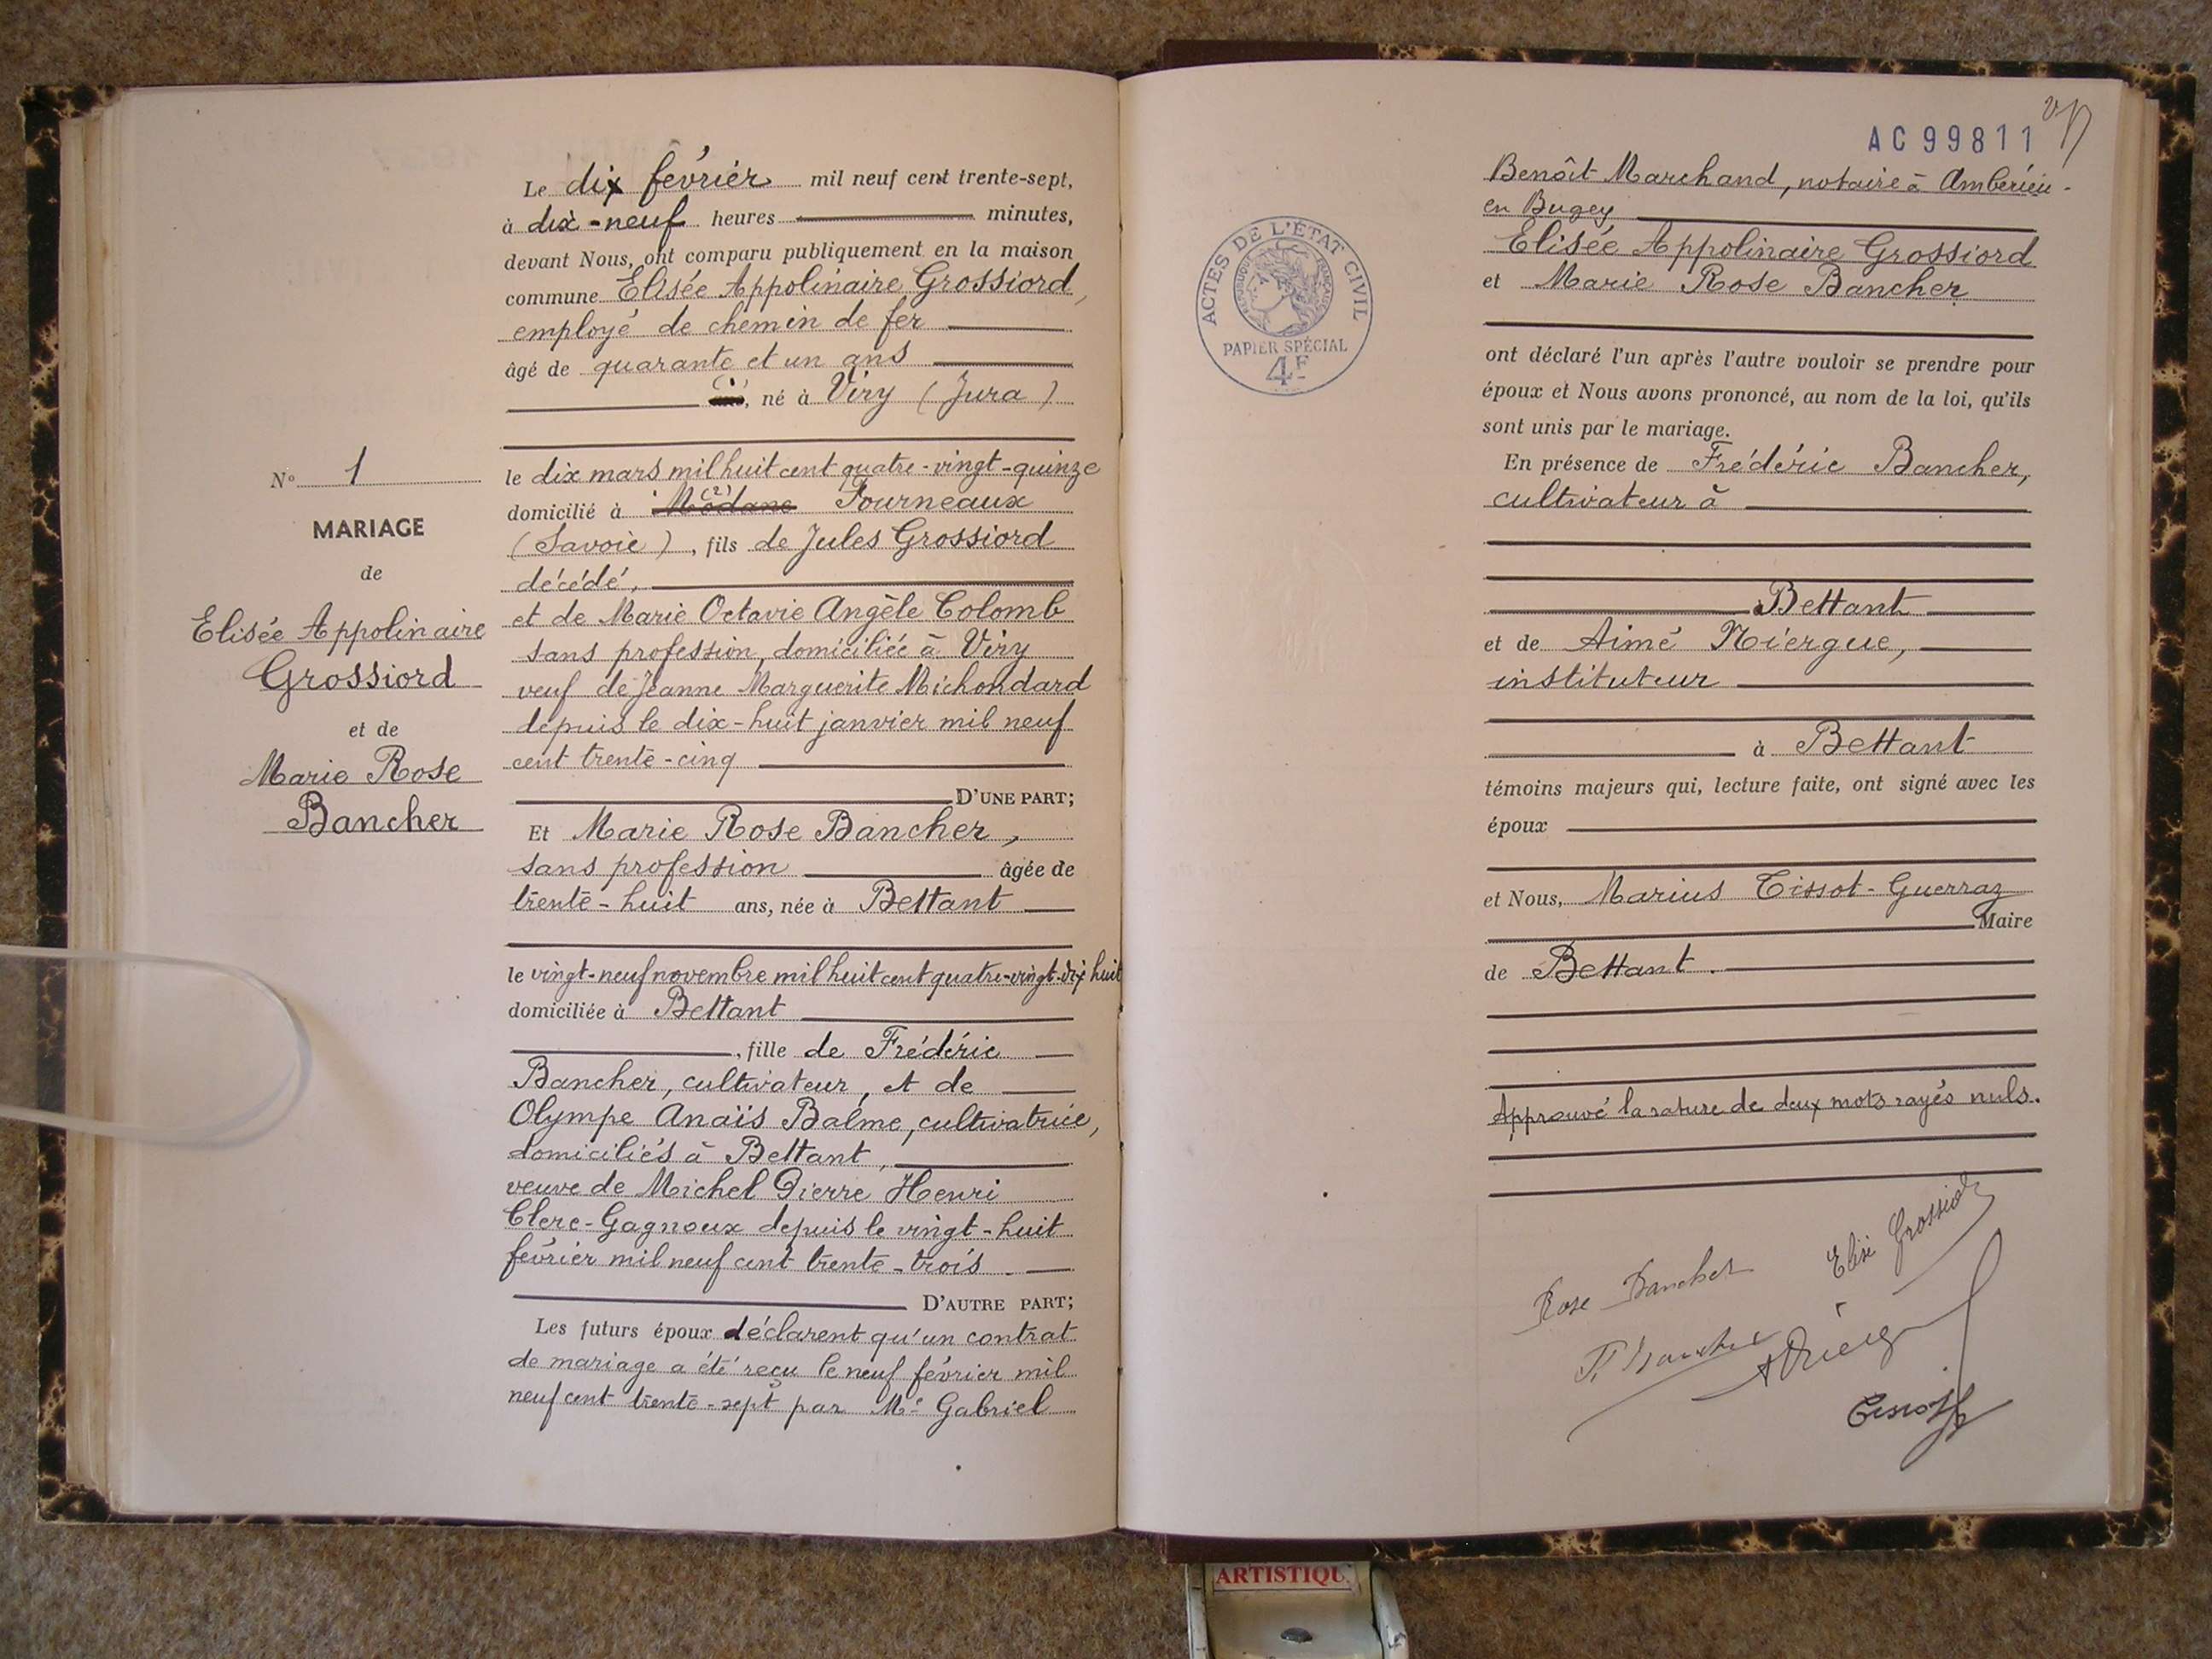 Le dix février mil neuf cent trente-sept,
à dix-neuf heures minutes,
devant Nous, ont comparu publiquement en la maison
commune Elisée Appolinaire Grossiord,
employé de chemin de fer
âgé de quarante et un ans
(1)
ans, né à Viry (Jura)
N° 1
MARIAGE
de
Elisée Appolinaire
Grossiord
et de
Marie Rose
Bancher
le dix mars mil huit cent quatre-vingt-quinze
(2)
domicilié à Modane Fourneaux
(Savoie), fils de Jules Grossiord
décédé,
et de Marie Octavie Angèle Colomb
sans profession, domiciliée à Viry
veuf de Jeanne Marguerite Michondard
depuis le dix-huit janvier mil neuf
cent trente-cinq
D'UNE PART;
Et Marie Rose Bancher,
sans profession âgée de
trente-huit ans, née à Bettant
le vingt-neuf novembre mil huit cent quatre-vingt-dix huit
domiciliée à Bettant
, fille de Frédéric
Bancher, cultivateur, et de
Olympe Anaïs Balme, cultivatrice,
domiciliés à Bettant,
veuve de Michel Pierre Henri
Clerc-Gagnoux depuis le vingt-huit
février mil neuf cent trente-trois
D'AUTRE PART;
Les futurs époux déclarent qu'un contrat
de mariage a été reçu le neuf février mil
neuf cent trente-sept par Me Gabriel
AC 99811
ACTES DE L'ÉTAT CIVIL
RÉPUBLIQUE FRANÇAISE
PAPIER SPÉCIAL
4F
Benoît Marchand, notaire à Ambérieu-
en Bugey
Elisée Appolinaire Grossiord
et Marie Rose Bancher
ont déclaré l'un après l'autre vouloir se prendre pour
époux et Nous avons prononcé, au nom de la loi, qu'ils
sont unis par le mariage.
En présence de Frédéric Bancher,
cultivateur à
Bettant
et de Aimé Niergue,
instituteur
à Bettant
témoins majeurs qui, lecture faite, ont signé avec les
époux
et Nous, Marius Tissot-Guerraz
Maire
de Bettant.
Approuvé la rature de deux mots rayés nuls.
Elisé Grossiord
Rose Bancher
F. Bancher
ARTISTIQU